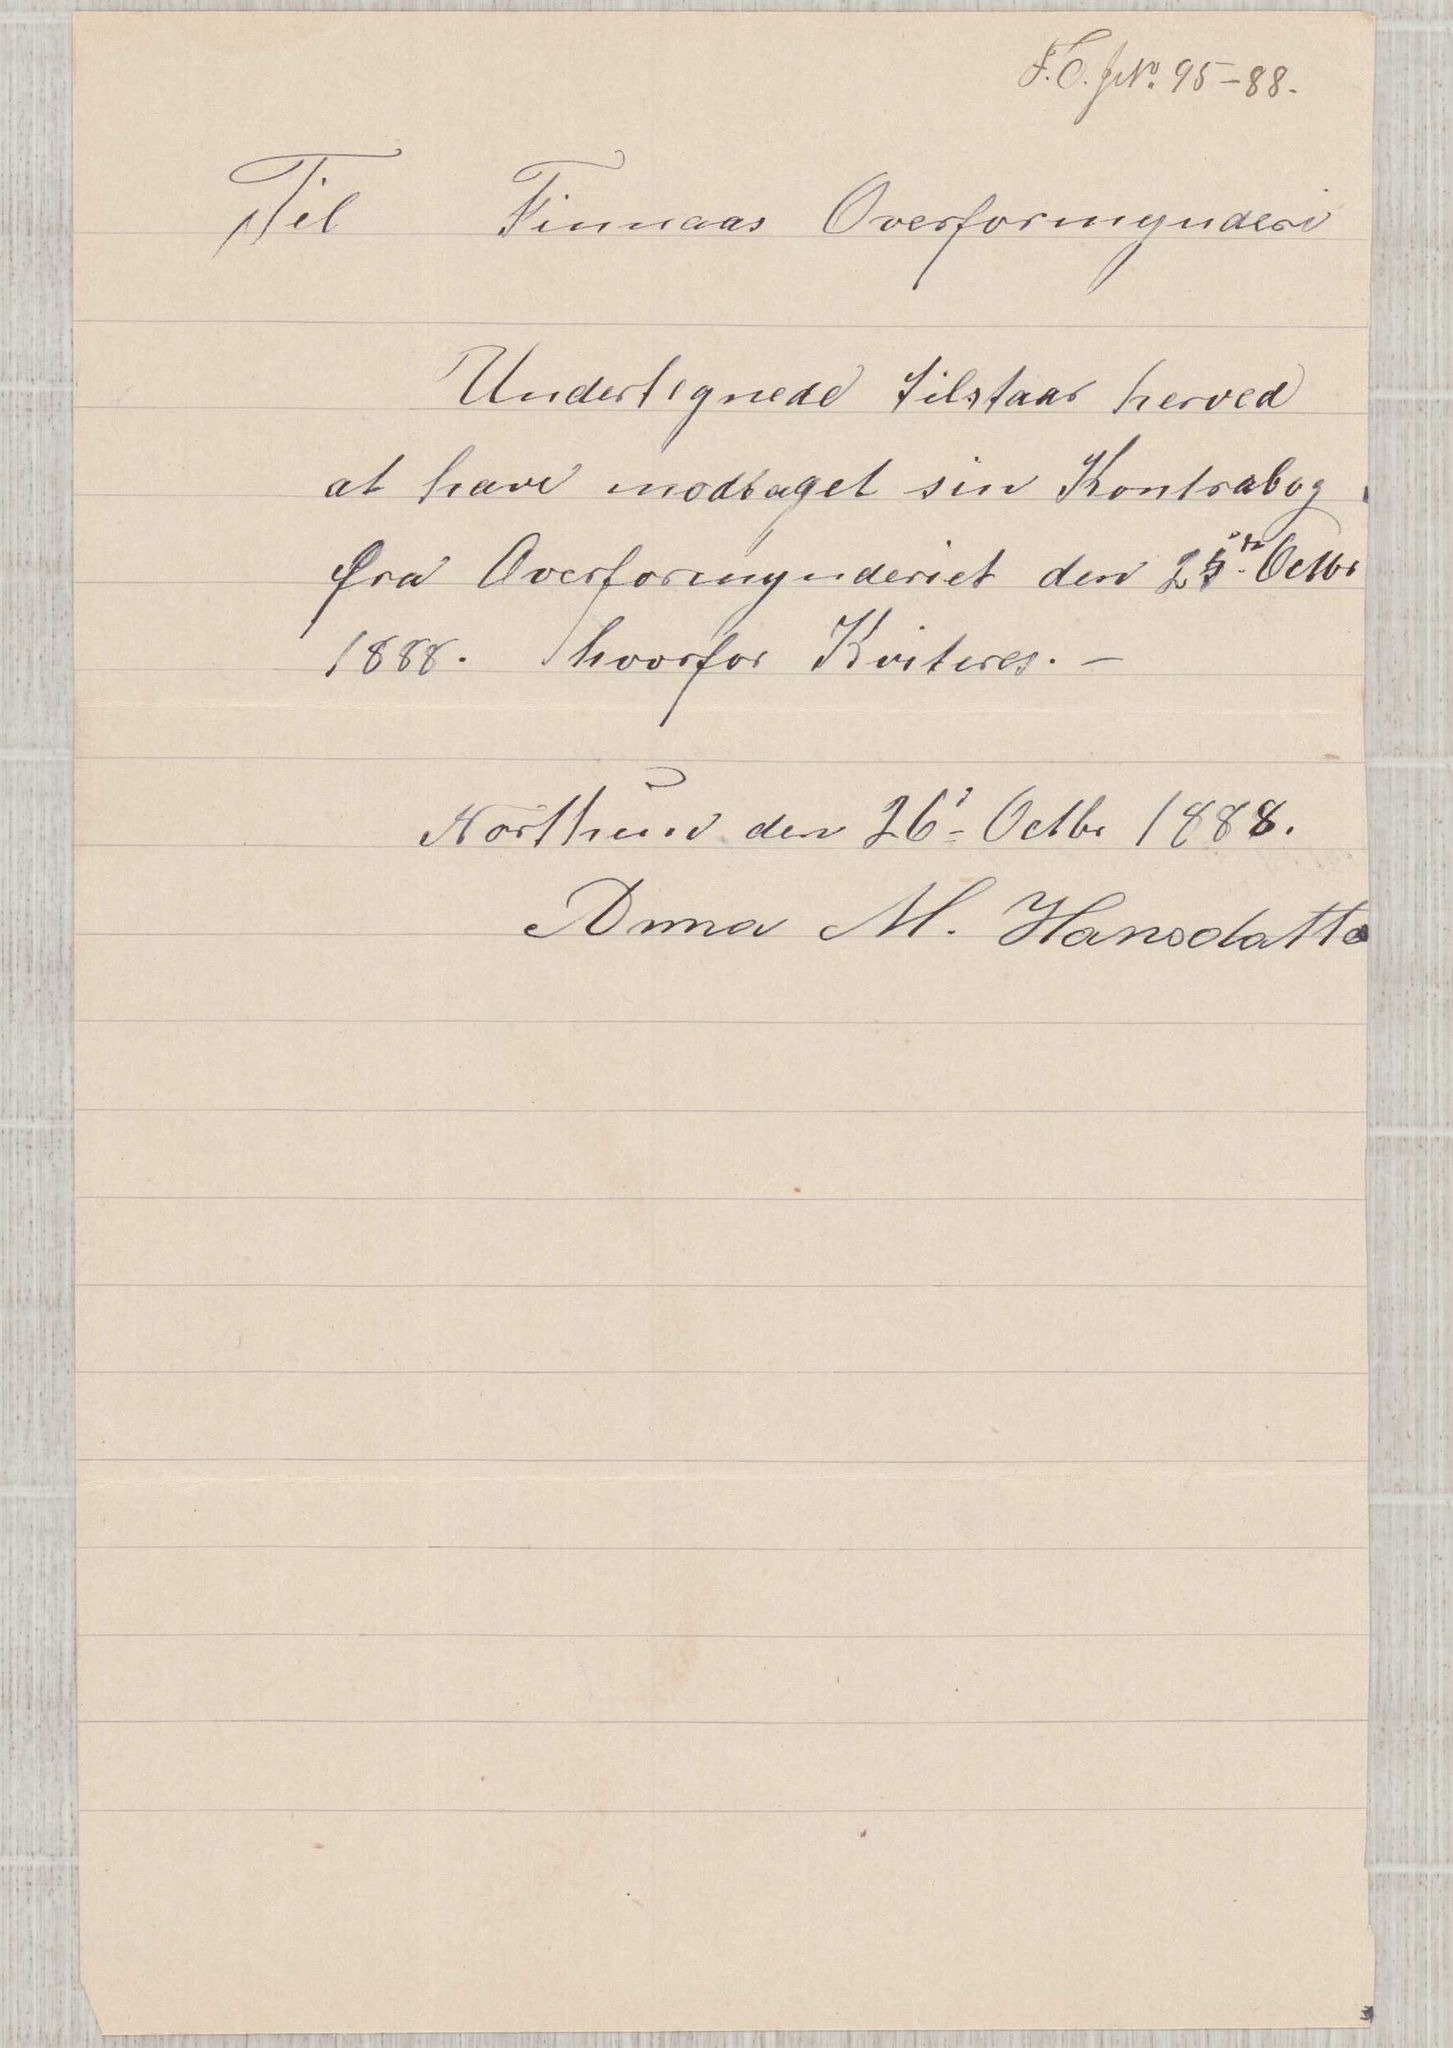 F.O. JNo. 95-88.
Til Finnaas Overformynderi
Undertegnede tilstaar herved
at have modtaget sin Kontrabog
fra Overformynderiet den 25de Octbr
1888. hvorfor Kviteres. —
den 26' Octbr 1888.
Anna M. Hansdatte